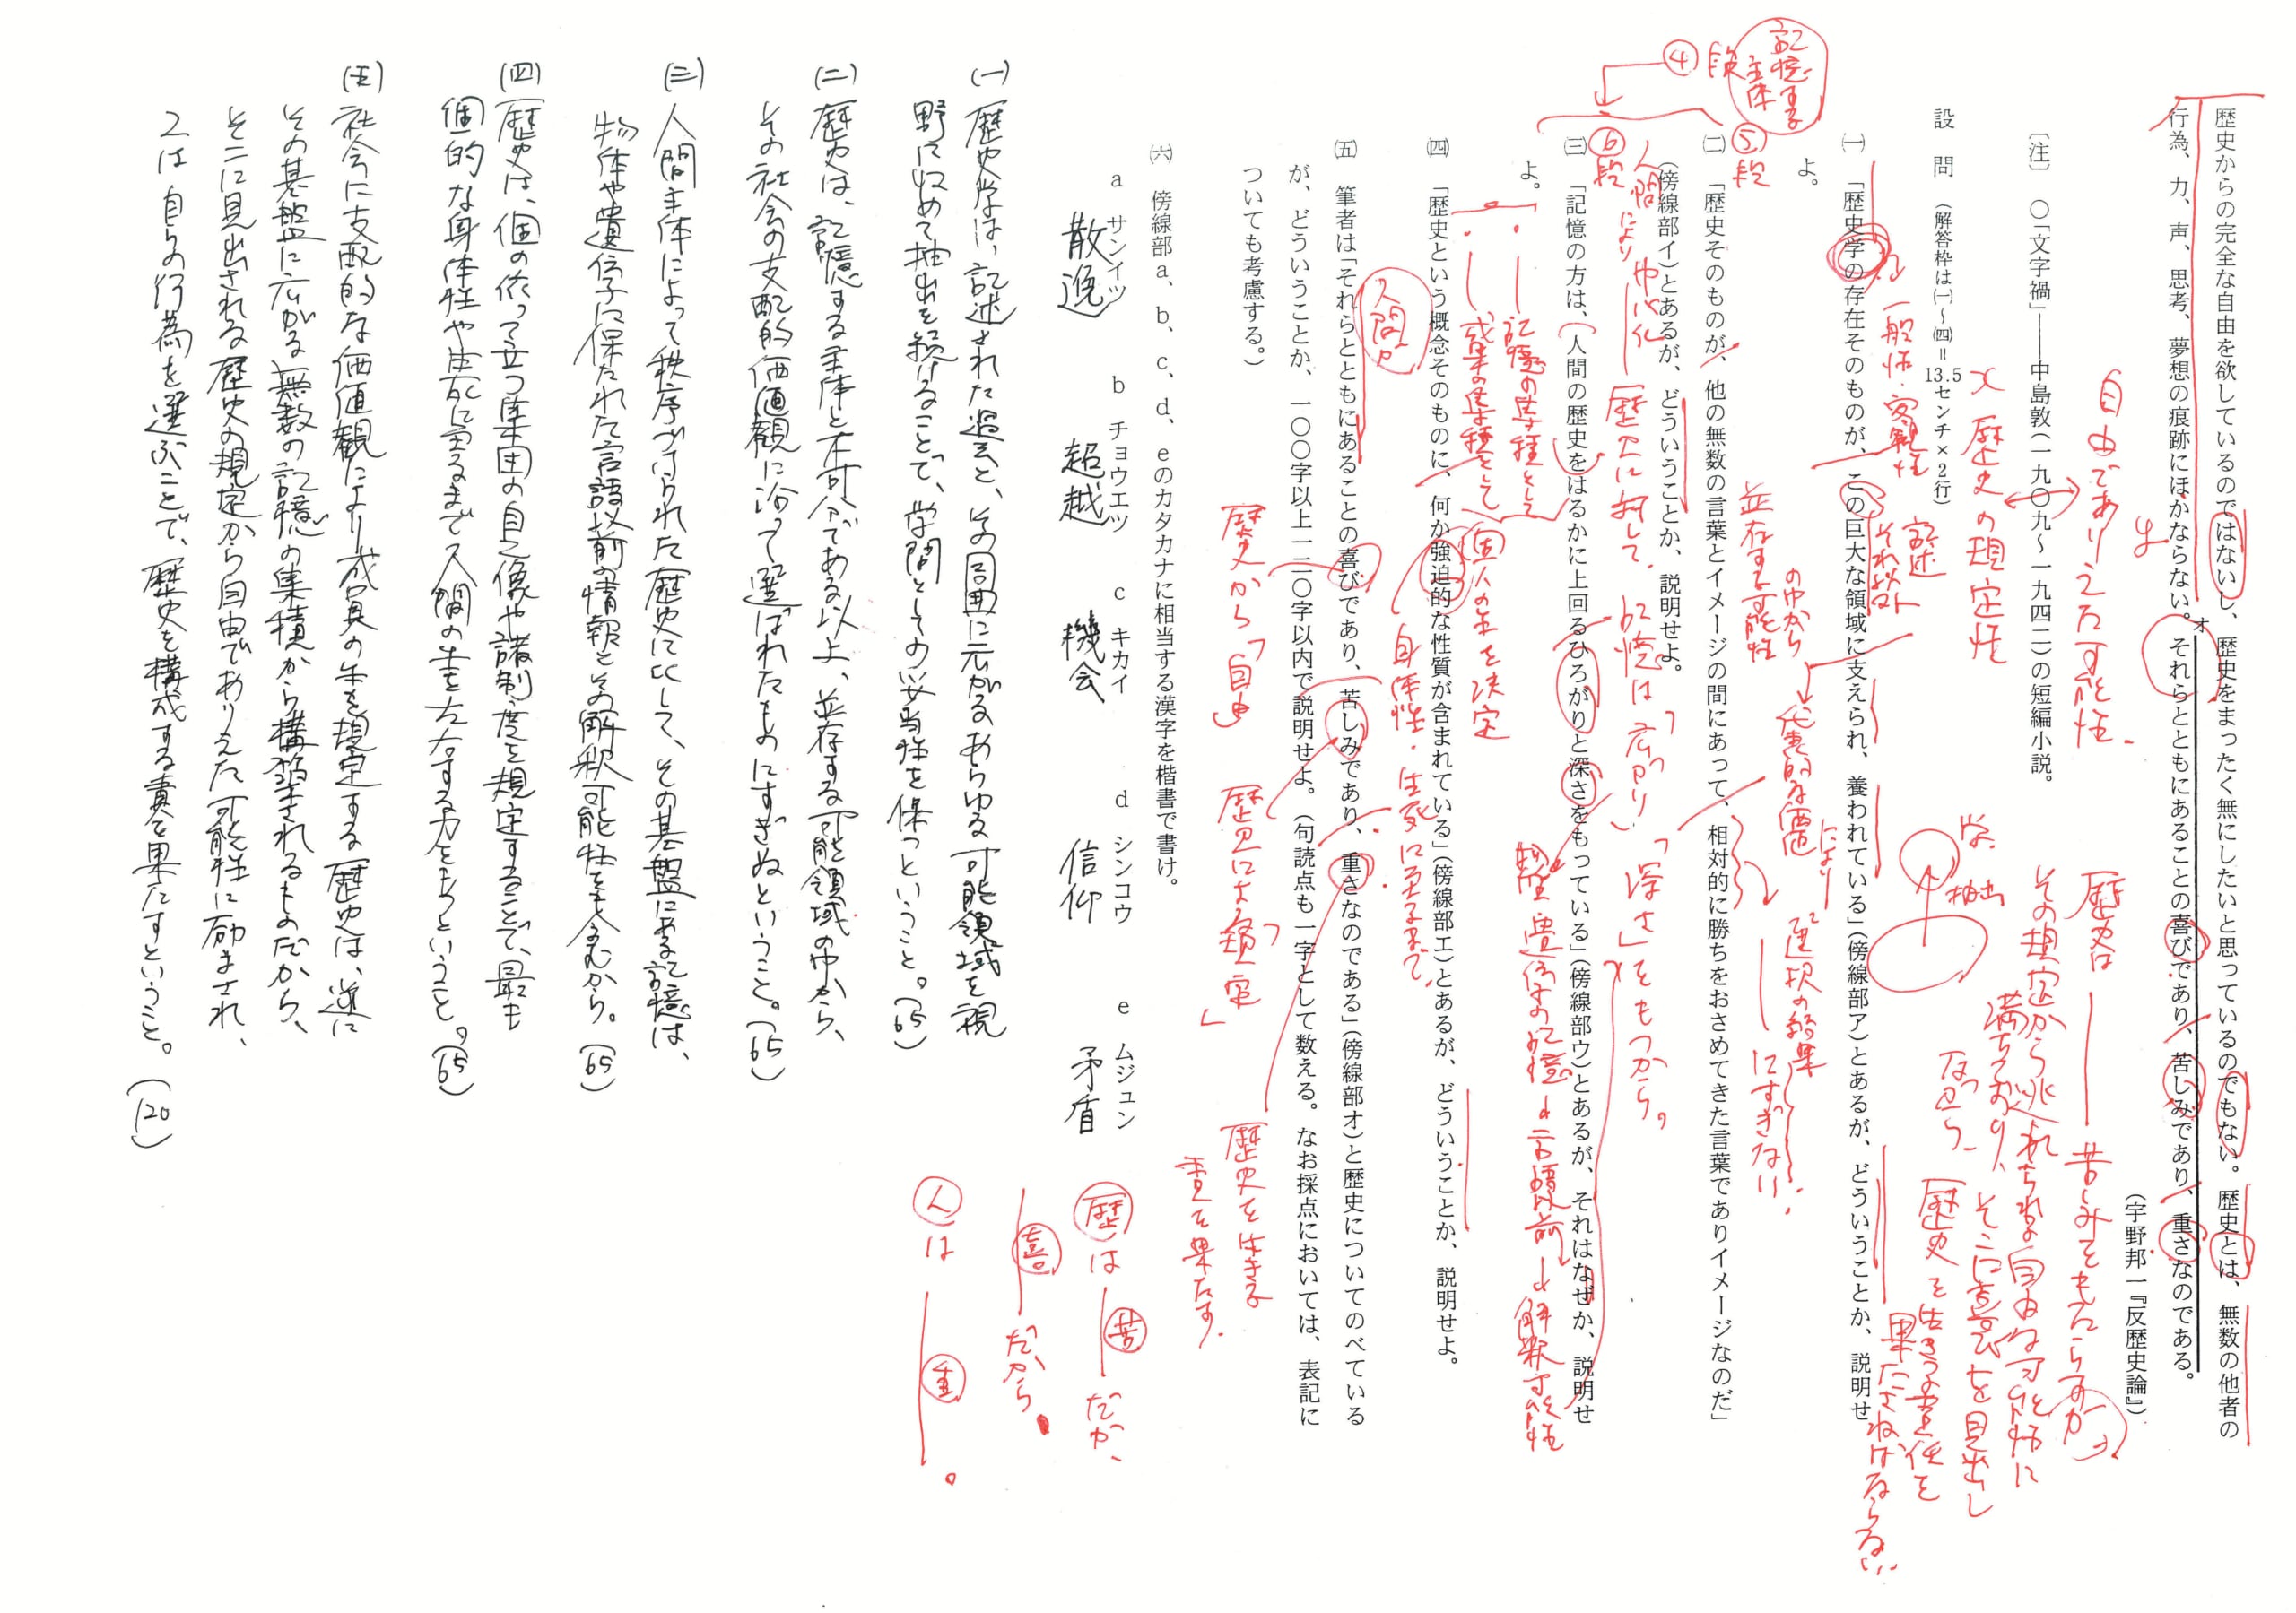 歴史からの完全な自由を欲しているのではないし、歴史をまったく無にしたいと思っているのでもない。歴史とは、無数の他者の
行為、力、声、思考、夢想の痕跡にほかならない。それらとともにあることの喜びであり、苦しみであり、重さなのである。
オ
(宇野邦一『反歴史論』)
〔注〕 ○「文字禍」――中島敦(一九〇九〜一九四二)の短編小説。
自由でありえた可能性.
歴史は――苦しみをもたらすが
その規定から逃れられる自由な可能性に
満ちており、そこに喜びを見出し
ながら、歴史を生きうる責任を
果たさねばならない
× 歴史の規定性
学.
抽出
設 問 (解答枠は㈠〜㈣=13.5センチ×2行)
一般性・客観性
記述
それ以外
㈠ 「歴史学の存在そのものが、この巨大な領域に支えられ、養われている」(傍線部ア)とあるが、どういうことか、説明せ
よ。
並存する可能性
の中から
代表的な価値
により
選択の結果
にすぎない.
記憶する
主体
④段
⑤段
⑥段
㈡ 「歴史そのものが、他の無数の言葉とイメージの間にあって、相対的に勝ちをおさめてきた言葉でありイメージなのだ」
(傍線部イ)とあるが、どういうことか、説明せよ。
人間により中心化
歴史に対して、記憶は「広がり」「深さ」をもつから。
㈢ 「記憶の方は、人間の歴史をはるかに上回るひろがりと深さをもっている」(傍線部ウ)とあるが、それはなぜか、説明せ
よ。
物質 遺伝子の記憶 → 言語以前 → 解釈可能性
記憶の集積として
個人の生を決定
身体性・生死に至るまで
㈣ 「歴史という概念そのものに、何か強迫的な性質が含まれている」(傍線部エ)とあるが、どういうことか、説明せよ。
人間が
㈤ 筆者は「それらとともにあることの喜びであり、苦しみであり、重さなのである」(傍線部オ)と歴史についてのべている
が、どういうことか、一〇〇字以上一二〇字以内で説明せよ。(句読点も一字として数える。なお採点においては、表記に
ついても考慮する。)
歴史から「自由」
歴史による「規定」
歴史を生きる
責を果たす.
㈥ 傍線部a、b、c、d、eのカタカナに相当する漢字を楷書で書け。
a サンイツ b チョウエツ c キカイ d シンコウ e ムジュン
散逸 超越 機会 信仰 矛盾
歴は――苦 だが、
――喜 だから、
人は――重。
(一) 歴史学は、記述された過去と、その周囲に広がるあらゆる可能領域を視
野に収めて抽出を続けることで、学問としての妥当性を保つということ。(65)
(二) 歴史は、記憶する主体と不可分である以上、並存する可能領域の中から、
その社会の支配的価値観に沿って選ばれたものにすぎぬということ。(65)
(三) 人間主体によって秩序づけられた歴史に比して、その基盤にある記憶は、
物体や遺伝子に保たれた言語以前の情報とその解釈可能性をも含むから。(65)
(四) 歴史は、個の依って立つ集団の自己像や諸制度を規定することで、最も
個的な身体性や生死に至るまで人間の生を左右する力をもつということ。(65)
(五) 社会に支配的な価値観により成員の生を規定する歴史は、逆に
その基盤に広がる無数の記憶の集積から構築されるものだから、
そこに見出される歴史の規定から自由でありえた可能性に励まされ、
人は自らの行為を選ぶことで、歴史を構成する責を果たすということ。(120)